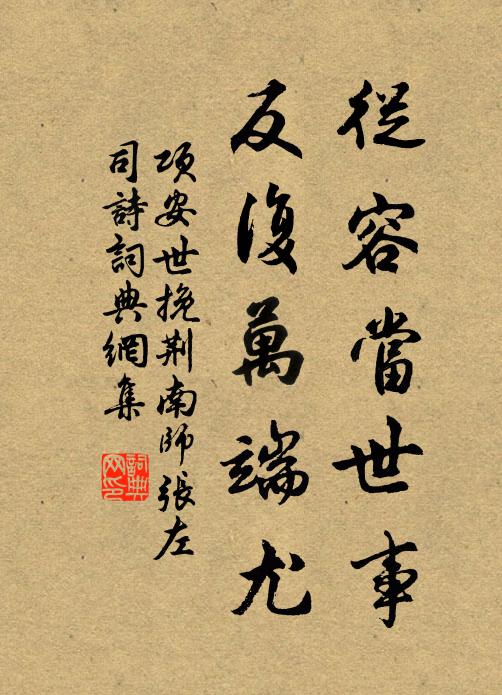 從容當世事
反復萬端尤
項安世挽荆南師張左
司詩詞典網集
詞典网印